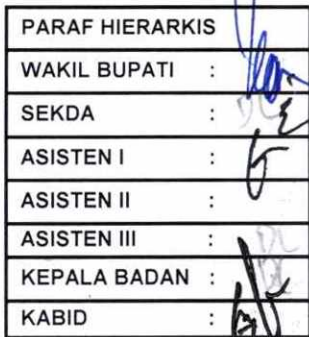 PARAF HIERARKIS
WAKIL BUPATI :
SEKDA :
ASISTEN I :
ASISTEN II :
ASISTEN III :
KEPALA BADAN :
KABID :